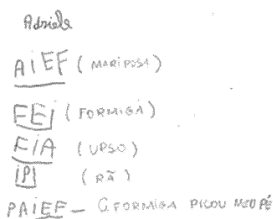 Adriele
AIEF (MARIPOSA)
FEI (FORMIGA)
FIA (URSO)
IPI (RÃ)
PAIEF - A FORMIGA PICOU MEU PÉ